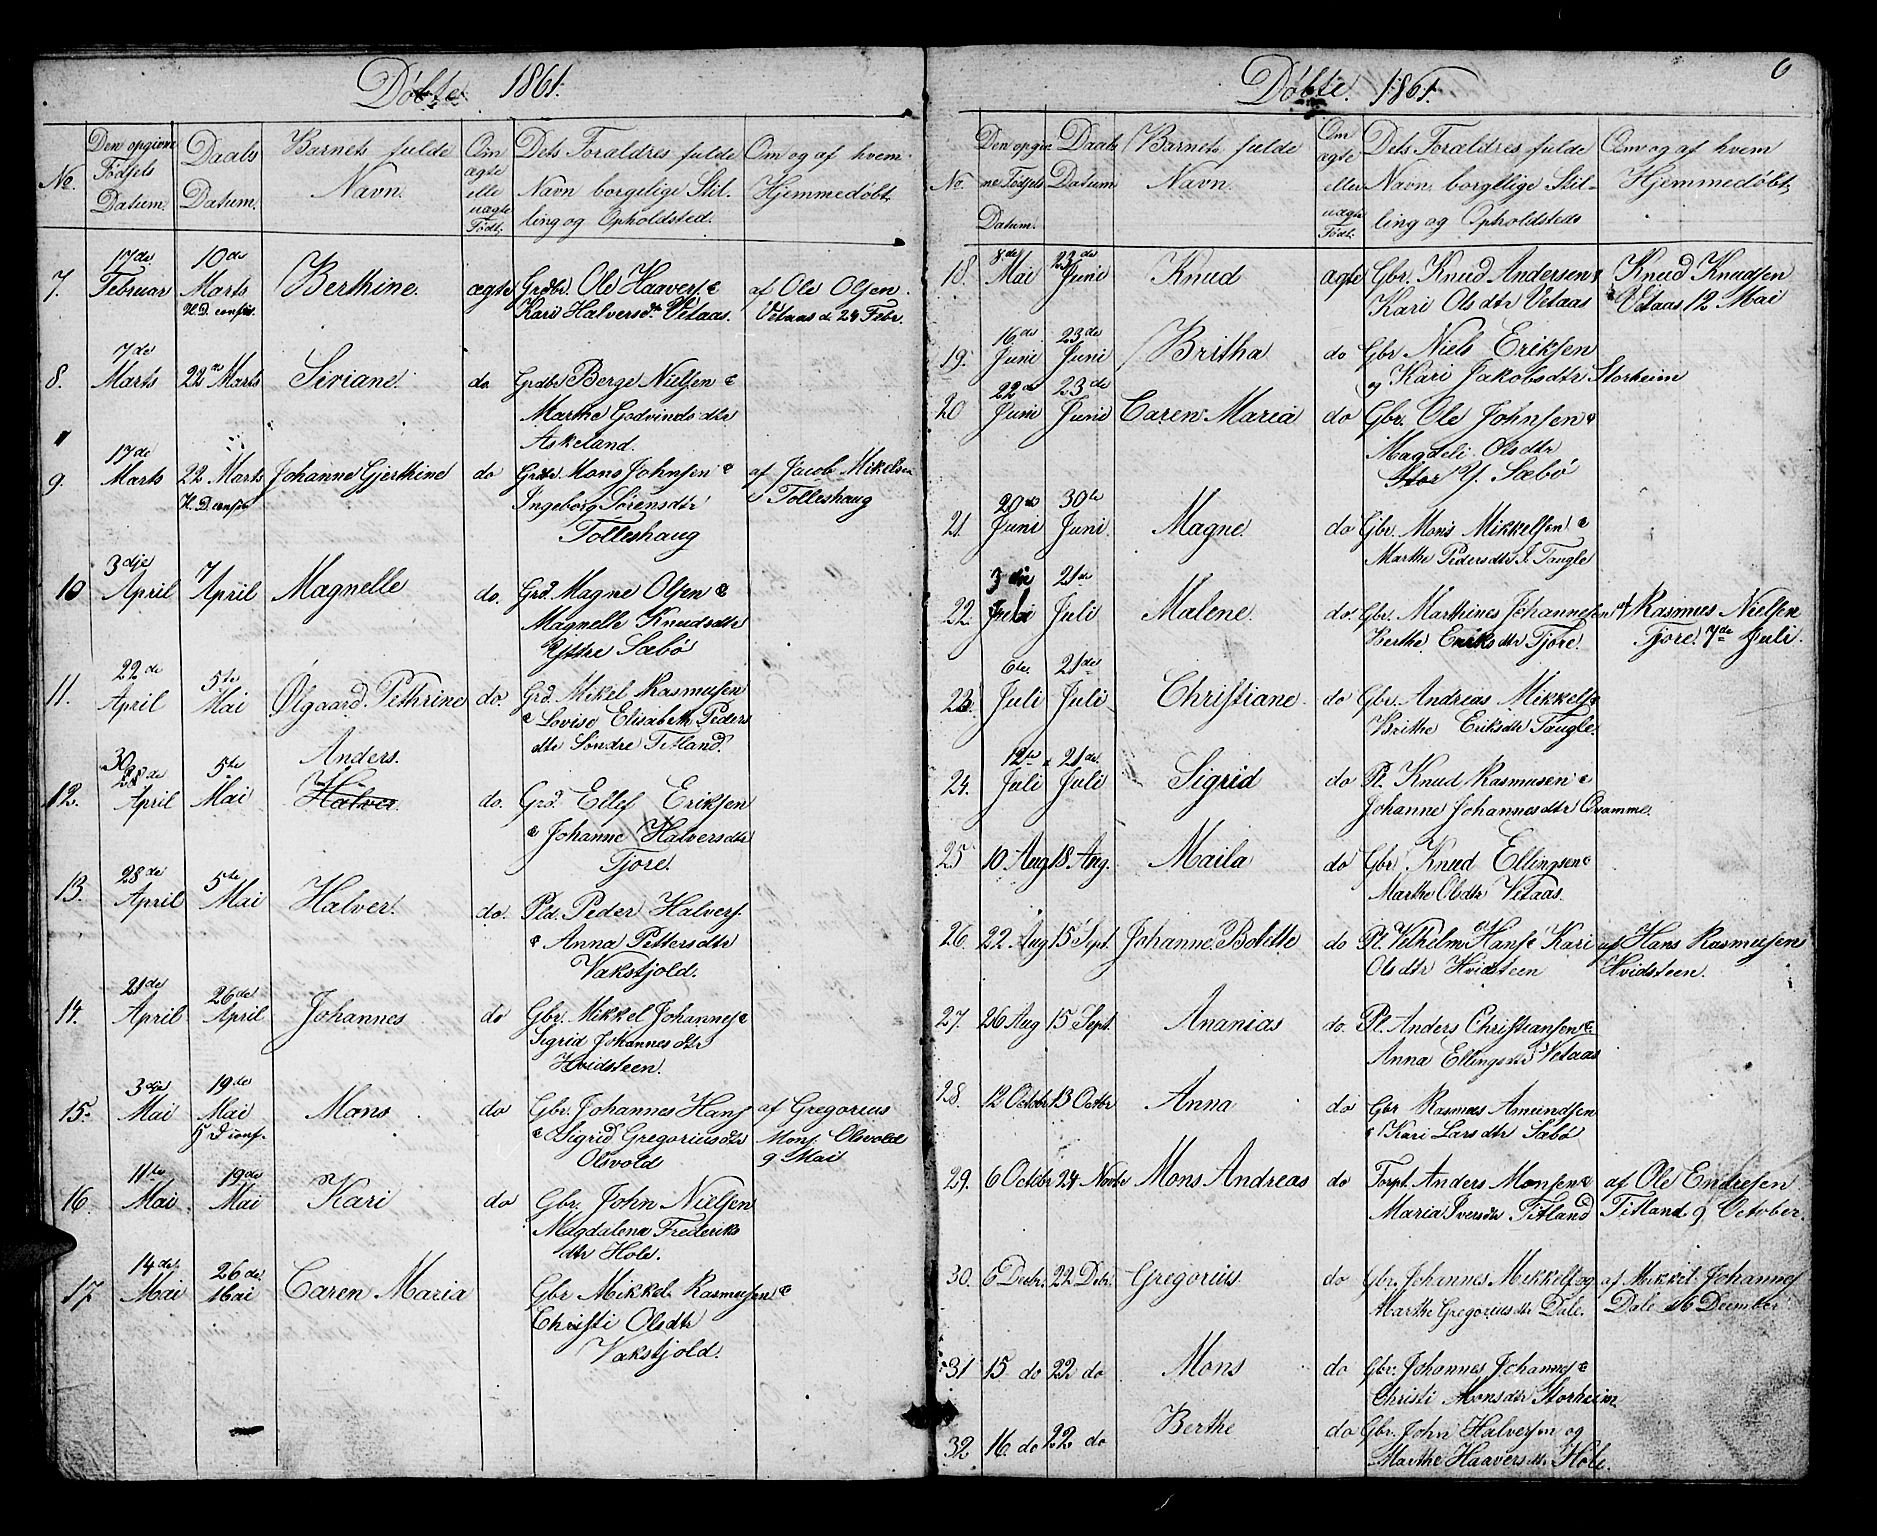 Döbte 1861.
No. Den opgivne Födsels Datum. Daabs Datum. Barnets fulde Navn. Om ægte elle uægte Födt. Dets Forældres fulde Navn borgelige Stilling og Opholdsted. Om og af hvem Hjemmedöbt,
7. 17de Februar 10de Marts H.D. confir. Berthine. ægte Grdbr. Ole Haavers. & af Ole Olsen
Kari Halversd. Vetaas. Vetaas d. 24 Febr.
8. 7de Marts 22de Marts Siriane. do Grdbr Berge Nielsen &
Marthe Godvinds dtr
Askeland.
9. 17de Marts 22 Marts H.D. confir Johanne Gjerthine do Grdbr. Mons Johnsen & af Jacob Mikelsen
Ingeborg Sörensdtr Tolleshaug
Tolleshaug
10 3dje April 7 April Magnelle do. Grd. Magne Olsen &
Magnelle Knudsdtr
Yttre Sæbö
11. 22de April 5te Mai Ølgaard Pethrine do. Grd. Mikel Rasmusen
& Lovise Elisabeth Peders
dtr Söndre Titland.
Anders.
12. 30 28de April 5te Mai Halver. do. Grd. Ellef Eriksen
& Johanne Halversdtr
Tjore.
13. 28de April 5te Mai Halver. do. Pld. Peder Halvers.
& Anna Pettersdtr
Vakstjold.
14. 21de April 26de April Johannes do Gbr. Mikkel Johannes. &
Sigrid Johannes dtr
Hvidsteen.
15. 3dje Mai 19de Mai H D conf. Mons do Gbr. Johannes Hans. af Gregorius
& Sigrid Gregoriusdtr Mons. Olsvold
Olsvold 9 Mai
16. 11te Mai 19de Mai Kari do Gbr. John Nielsen
Magdalena Frederiks
dtr Hole.
17 14de Mai 26de Mai Caren Maria Gbr Mikkel Rasmusen &
Christi Olsdtr
Vakstjold.
Döbte. 1861. 6
No. Den opgivne Födsels Datum. Daabs Datum Barnets fulde Navn. Om ægte eller uægte Födt. Dets Forældres fulde Navn borgelige Stilling og Opholdsteds Om og af hvem Hjemmedöbt,
18 8de Mai 23de Juni Knud ægte Gbr. Knud Andersen & Knud Knudsen
Kari Ols dtr Vetaas Vetaas 12 Mai
19. 16de Juni 23de Juni Britha do Gbr Niels Eriksen
og Kari Jakobsdtr Storheim
20 22de Juni 23de Juni Caren Maria do Gbr. Ole Johnsen &
Magdeli Olsdtr
Stor Y. Sæbö
21. 20de Juni 30te Juni. Magne. do Gbr. Mons Mikkelsen &
Marthe Pedersdtr I. Tangle
22. 3die Juli 21de Juli Malene. do. Gbr. Marthines Johannesen af Rasmus Nielsen
Berthe Eriks dtr Tjore. Tjore. 7de Juli.
23. 6te Juli 21de Juli Christiane. do Gbr. Andreas Mikkels &
Brithe Eriksdtr Tangle.
24. 12te Juli 21de Juli Sigrid do Pl. Knud Rasmusen &
Johanne Johannesdtr Qvamme.
25 10 Aug 18 Aug. Maila do Gbr. Knud Ellingsen &
Marthe Olsdtr Vetaas.
26. 22 Aug 15 Sept. Johanne Bolette do Pl. Vilhelm Hans. & Kari af Hans Rasmusen
Olsdtr Hvidsteen Hvidsteen.
27. 26 Aug 15 Sept. Ananias do. Pl. Anders Christiansen &
Anna Ellingsdtr Vetaas
28. 12 Octobr 13 Octbr Anna do Gbr Rasmus Amundsen
& Kari Larsdtr Sæbö
29. 6 Octobr 24 Novbr Mons Andreas do Torpl. Anders Monsen & af Ole Endresen
Maria Iversdtr Titland Titland 9 October.
30. 6 Decbr. 22 Debr. Gregorius. do Gbr. Johannes Mikkels og af Mikkel Johannes
Marthe Gregoriusdtr Dale. Dale 16 December
31 15 do 22 do Mons do Gbr. Johannes Johannes. &
Christi Monsdtr Storheim
32. 16 do 22 do Berthe do Gbr. John Halversen og
Marthe Haaversdtr Hole.